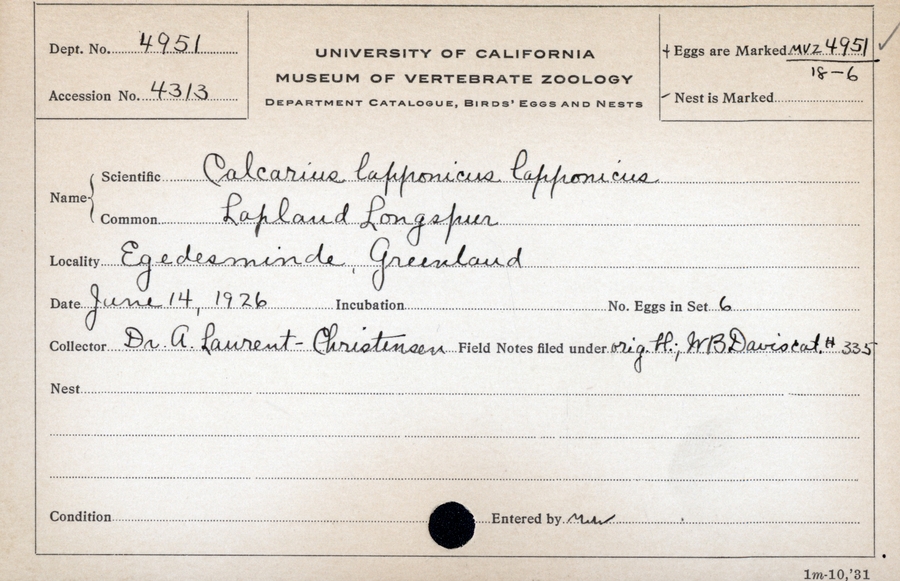 Dept. No. 4951
Accession No. 4313
UNIVERSITY OF CALIFORNIA
MUSEUM OF VERTEBRATE ZOOLOGY
DEPARTMENT CATALOGUE, BIRDS' EGGS AND NESTS
Eggs are Marked MVZ 4951
18-6
Nest is Marked
Name
Scientific Calcarius lapponicus lapponicus
Common Lapland Longspur
Locality Egedesminde, Greenland
Date June 14, 1926 Incubation No. Eggs in Set 6
Collector Dr. A. Laurent-Christensen Field Notes filed under orig. H.; WB Davis cat. # 335
Nest
Condition Entered by
1m-10,'31